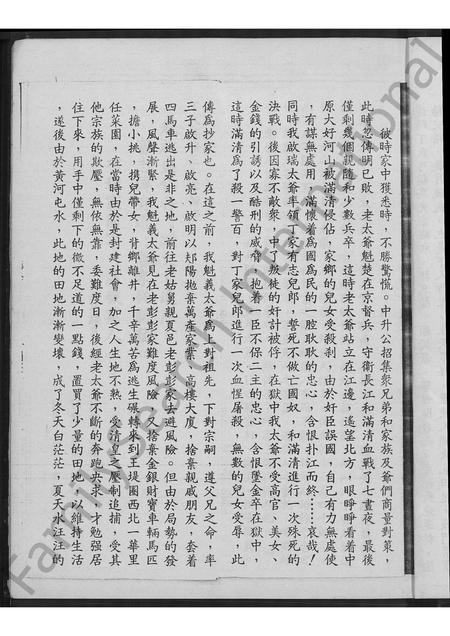 彼時家中獲悉時，不勝驚慌。中升公招集眾兄弟和家族及爺們商量對策，
此時忽傳明已敗，老太爺魁楚在京督兵，守衛長江和滿清血戰了七晝夜，最後
僅剩幾個親隨和少數兵卒，這時老太爺站立在江邊，遙望北方，眼睜睜看着中
原大好河山被滿清侵佔，家鄉的兒女受殺剎，由於奸臣誤國，自己有力無處使
，有謀無處用，滿懷着為國為民的一腔耿耿的忠心，含恨扑江而終……哀哉！
同時我啟瑞太爺率領丁家有志兒郎，誓死不做亡國奴，和滿清進行一次殊死的
決戰。後因寡不敵眾，中了叛徒的奸計被俘，在獄中我太爺不受高官、美女、
金錢的引誘以及酷刑的威脅，抱着一臣不保二主的忠心，含恨墜金卒在獄中，
這時滿清為了殺一警百，對丁家兒郎進行一次血惺屠殺，無數的兒女受辱，此
傳為抄家也。在這之前，我魁義太爺為對祖先，下對宗嗣，遵父兄之命，率
三子啟升、啟亮、啟明以及郏陽拋棄萬產家業，高樓大廈，捨棄親戚朋友，套着
四馬車逃出是非之地，前往老姑舅親夏邑老彭彭家去避風險。但由於局勢的發
展，風聲漸緊，我魁義太爺見在老彭彭家難度風險，又捨棄金銀財寶車輛馬匹
，擔小挑，携兒帶女，背鄉離井，千辛萬苦為逃生碾轉來到王堤圈西北一華里
任菜園，在當時由於是封建社會，加之人生地不熟，受清皇之壓制追捕，受其
他宗族的欺壓，無依無靠，委難度日，後經老太爺不斷的奔跑央求，才勉强居
住下來，用手中僅剩下的微不足道的一點錢，置買了少量的田地，以維持生活
，遂後由於黃河屯水，此地的田地漸漸變壞，成了冬天白茫茫，夏天水汪汪的
FamilySearch International